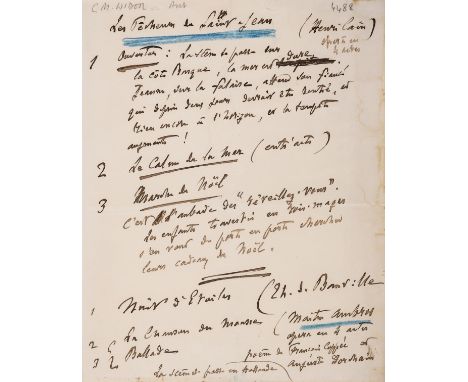 C.M. WIDOR - Aut
4488
Les Pêcheurs de Saint-Jean (Henri Cain)
opéra en 4 actes
1 Ouverture : La scène se passe sur
la côte Basque, la mer est dure
Jeanne, sur la falaise, attend son fiancé
qui depuis deux jours devrait être rentré, et
rien encore à l'horizon, et la tempête
augmente !
2 Le Calme de la Mer (entr'acte)
3 Marche de Noël
C'est l'aubade des "réveillez-vous".
Les enfants travestis en rois-mages
s'en vont de porte en porte chercher
leurs cadeaux de Noël.
1 Nuit d'Etoiles (Th. d. Banville
2 La Chanson du Mousse (Maître Ambros
3 Ballade opéra en 4 actes
poème de François Coppée et
La scène se passe en Hollande Auguste Dorchain